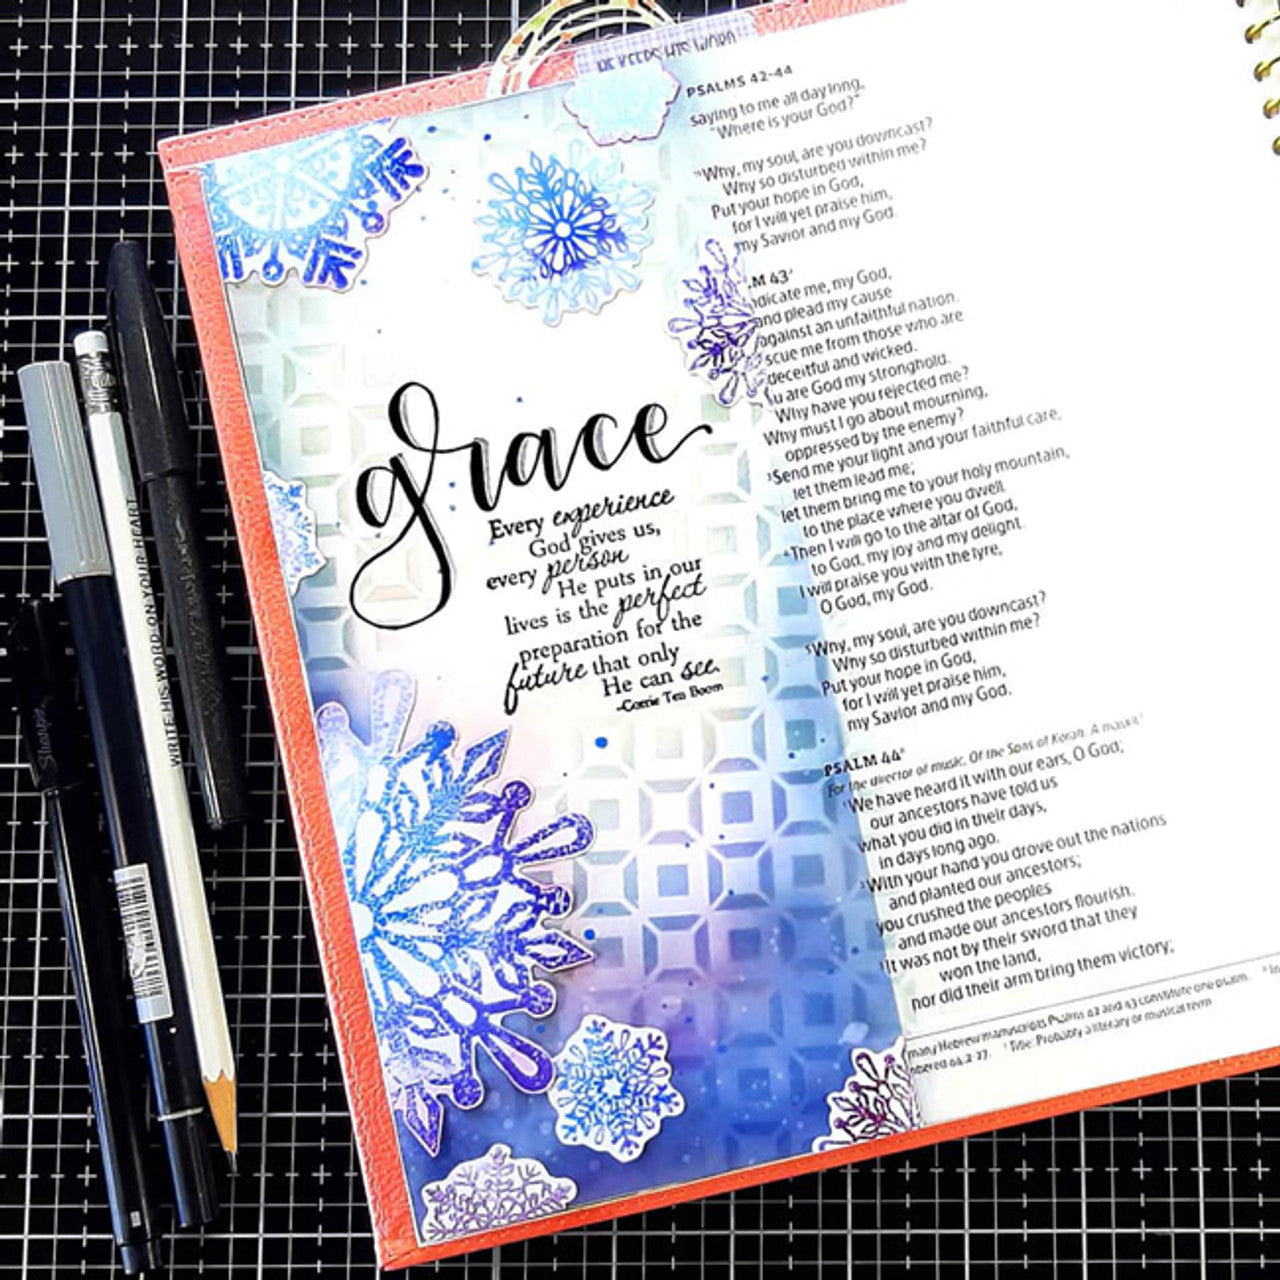 HE KEEPS HIS WORD
grace
Every experience
God gives us,
every person
He puts in our
lives is the perfect
preparation for the
future that only
He can see.
-Corrie Ten Boom
PSALMS 42-44
saying to me all day long,
"Where is your God?"
Why, my soul, are you downcast?
Why so disturbed within me?
Put your hope in God,
for I will yet praise him,
my Savior and my God.
M 43
dicate me, my God,
and plead my cause
against an unfaithful nation.
scue me from those who are
deceitful and wicked.
u are God my stronghold.
Why have you rejected me?
Why must I go about mourning,
oppressed by the enemy?
³Send me your light and your faithful care,
let them lead me;
let them bring me to your holy mountain,
to the place where you dwell.
⁴Then I will go to the altar of God,
to God, my joy and my delight.
I will praise you with the lyre,
O God, my God.
⁵Why, my soul, are you downcast?
Why so disturbed within me?
Put your hope in God,
for I will yet praise him,
my Savior and my God.
PSALM 44
For the director of music. Of the Sons of Korah. A maskil.
¹We have heard it with our ears, O God;
our ancestors have told us
what you did in their days,
in days long ago.
²With your hand you drove out the nations
and planted our ancestors;
you crushed the peoples
and made our ancestors flourish.
³It was not by their sword that they
won the land,
nor did their arm bring them victory;
many Hebrew manuscripts Psalms 42 and 43 constitute one psalm.
Title: Probably a literary or musical term
WRITE HIS WORD ON YOUR HEART
Sharpie